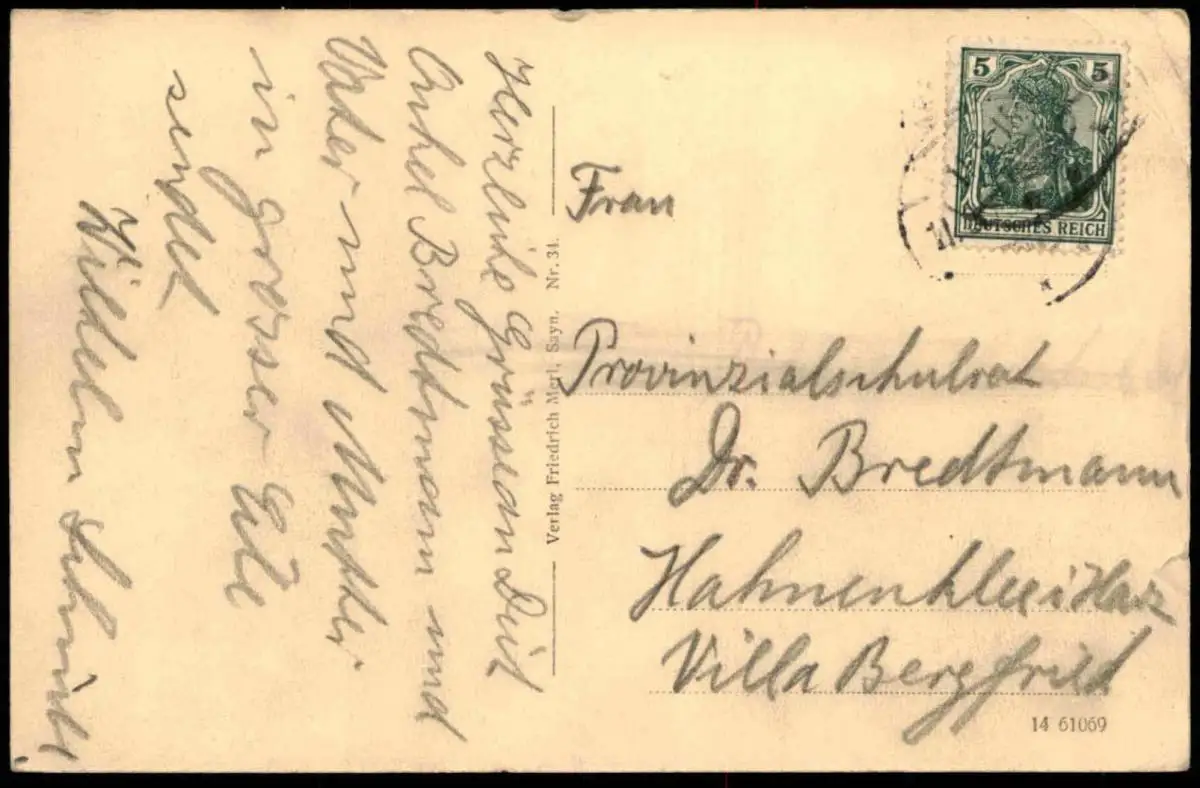 Herzliche Grüsse an Dich
Onkel Bredtmann und
Vater und Mutter
in grosser Eile
sendet
Wilhelm Schmidt.
Verlag Friedrich Merl, Sayn. Nr. 34.
5 5
DEUTSCHES REICH
Frau
Provinzialschulrat
Dr. Bredtmann
Hahnenklee i Harz
Villa Bergfried
14 61069